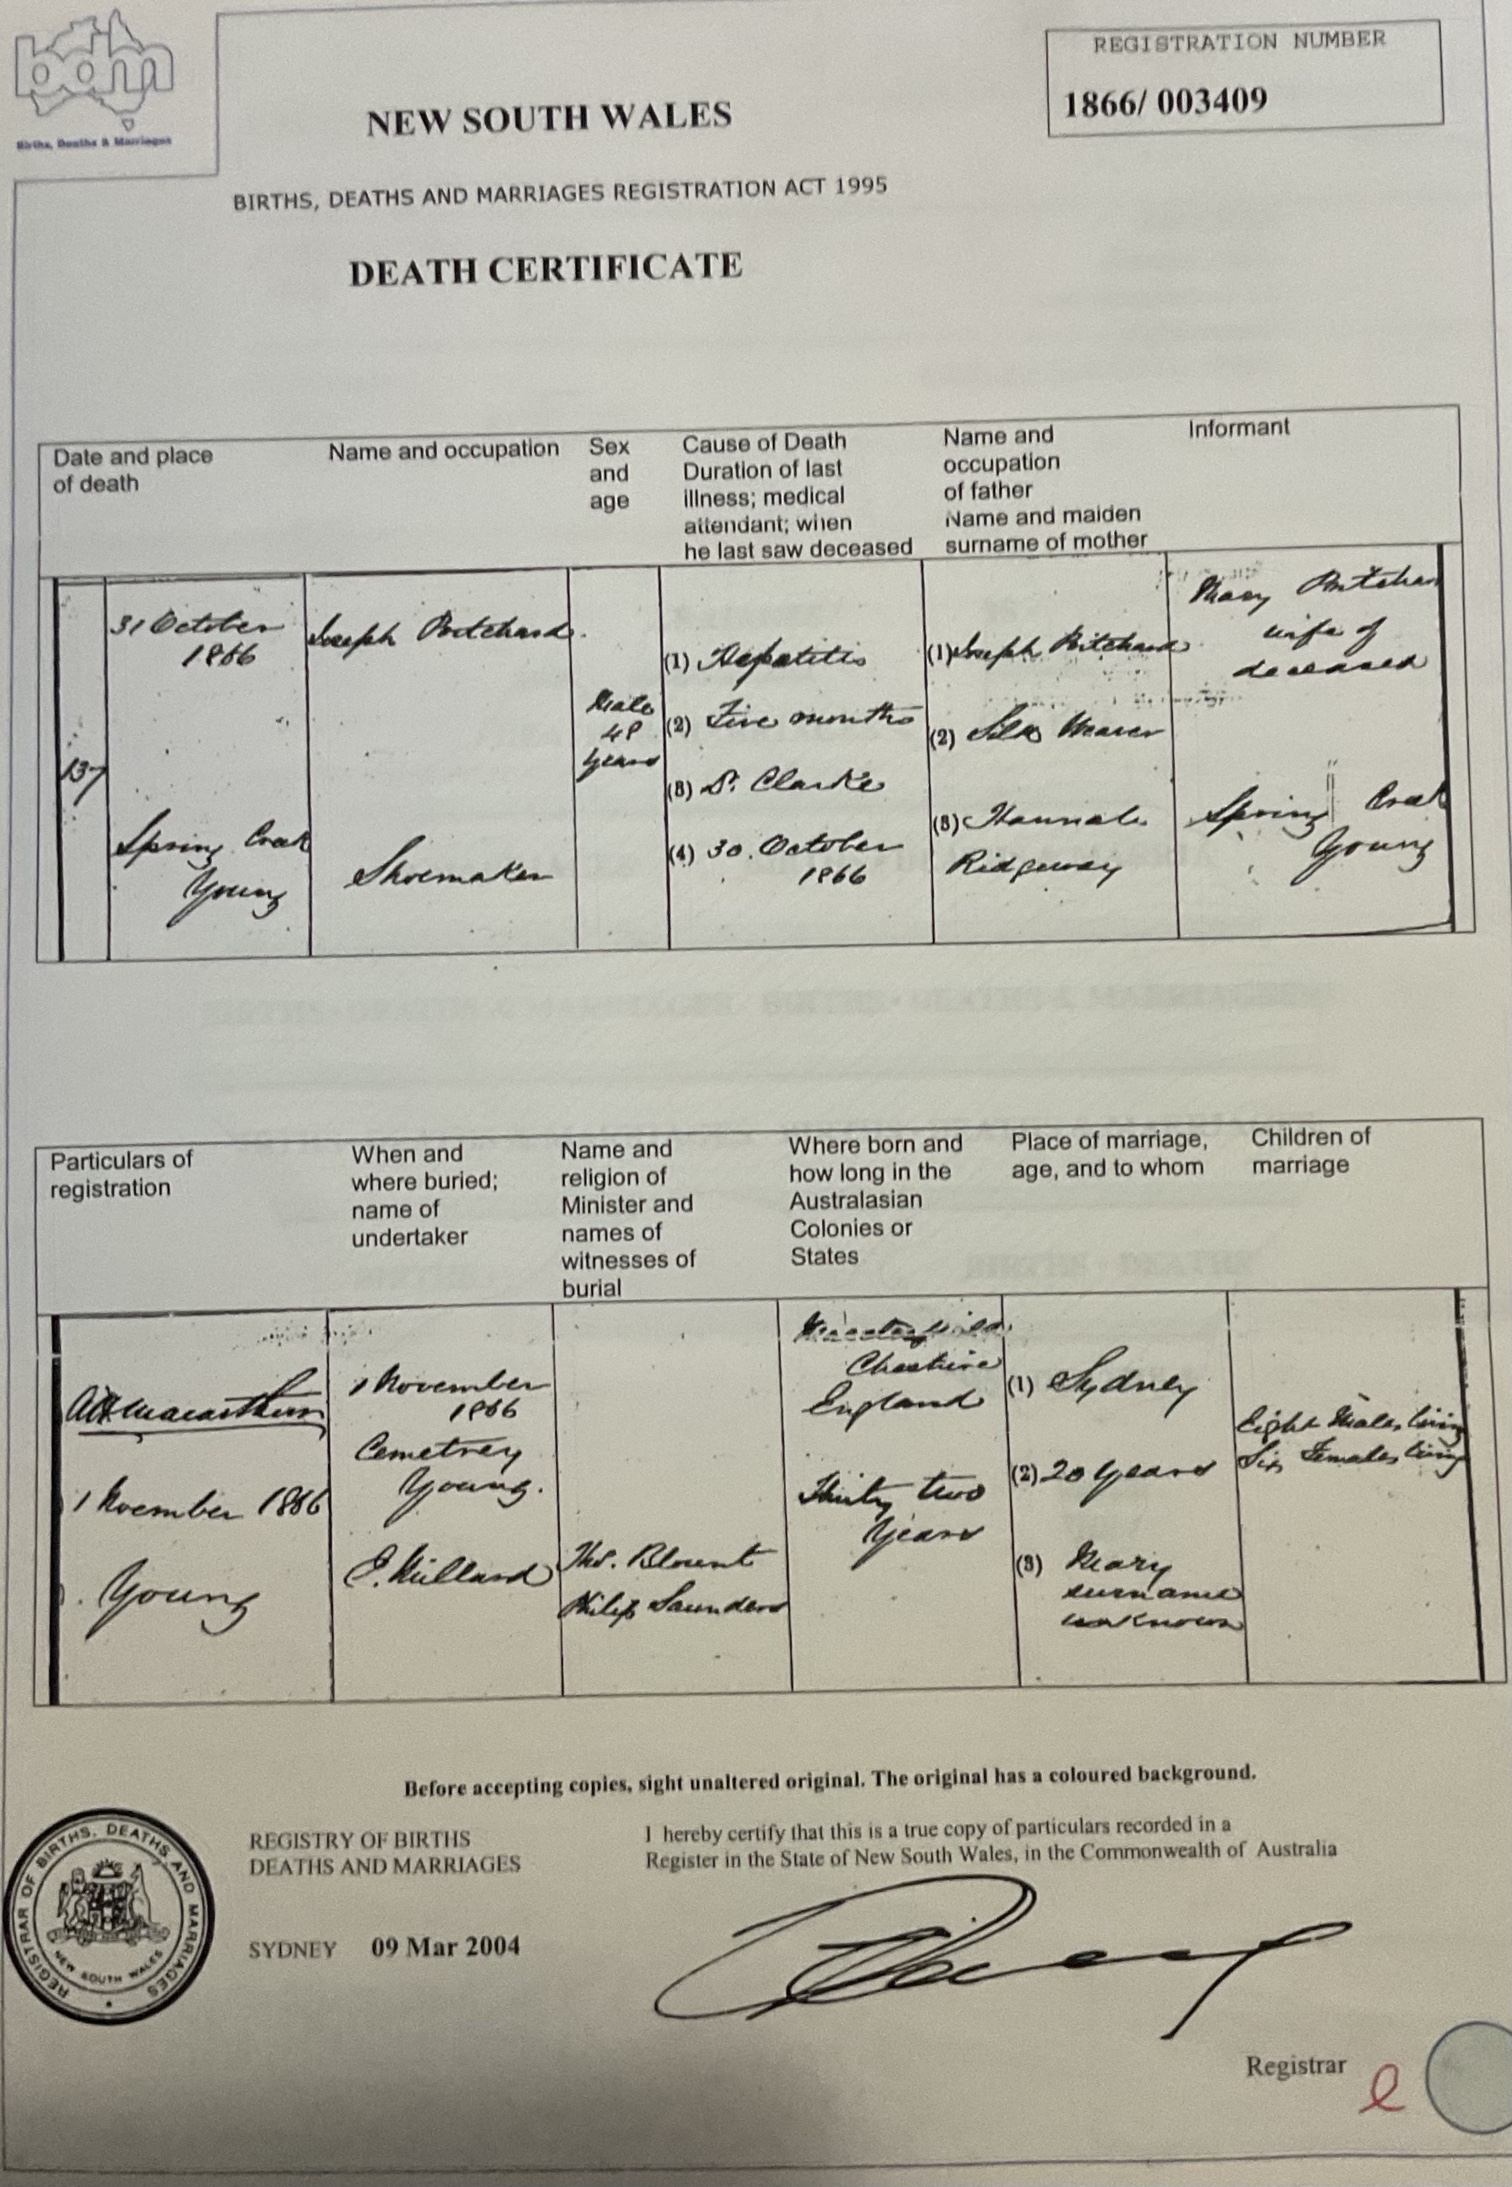 bdm
Births, Deaths & Marriages
REGISTRATION NUMBER
1866/ 003409
NEW SOUTH WALES
BIRTHS, DEATHS AND MARRIAGES REGISTRATION ACT 1995
DEATH CERTIFICATE
Date and place
of death
Name and occupation
Sex
and
age
Cause of Death
Duration of last
illness; medical
attendant; when
he last saw deceased
Name and
occupation
of father
Name and maiden
surname of mother
Informant
137
31 October
1866
Spring Creek
Young
Joseph Pritchard.
Shoemaker
Male
48
Years
(1) Hepatitis
(2) Five months
(3) Clarke
(4) 30. October
1866
(1) Joseph Pritchard
(2) Silk Weaver
(3) Hannah
Ridgeway
Mary Pritchar
wife of
deceased
Spring Creek
Young
Particulars of
registration
When and
where buried;
name of
undertaker
Name and
religion of
Minister and
names of
witnesses of
burial
Where born and
how long in the
Australasian
Colonies or
States
Place of marriage,
age, and to whom
Children of
marriage
Macarthur
1 November 1866
Young
1 November
1866
Cemetrey
Young.
Millard
Thos. Blount
Philip Saunders
Macclesfield
Cheshire
England
Thirty two
Years
(1) Sydney
(2) 20 Years
(3) Mary
surname
unknown
Eight Males living
Six Females living
Before accepting copies, sight unaltered original. The original has a coloured background.
REGISTRAR OF BIRTHS, DEATHS AND MARRIAGES
NEW SOUTH WALES
REGISTRY OF BIRTHS
DEATHS AND MARRIAGES
SYDNEY 09 Mar 2004
I hereby certify that this is a true copy of particulars recorded in a
Register in the State of New South Wales, in the Commonwealth of Australia
Registrar